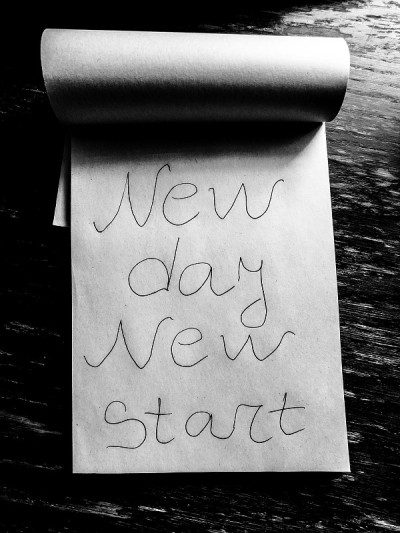 New
day
New
start